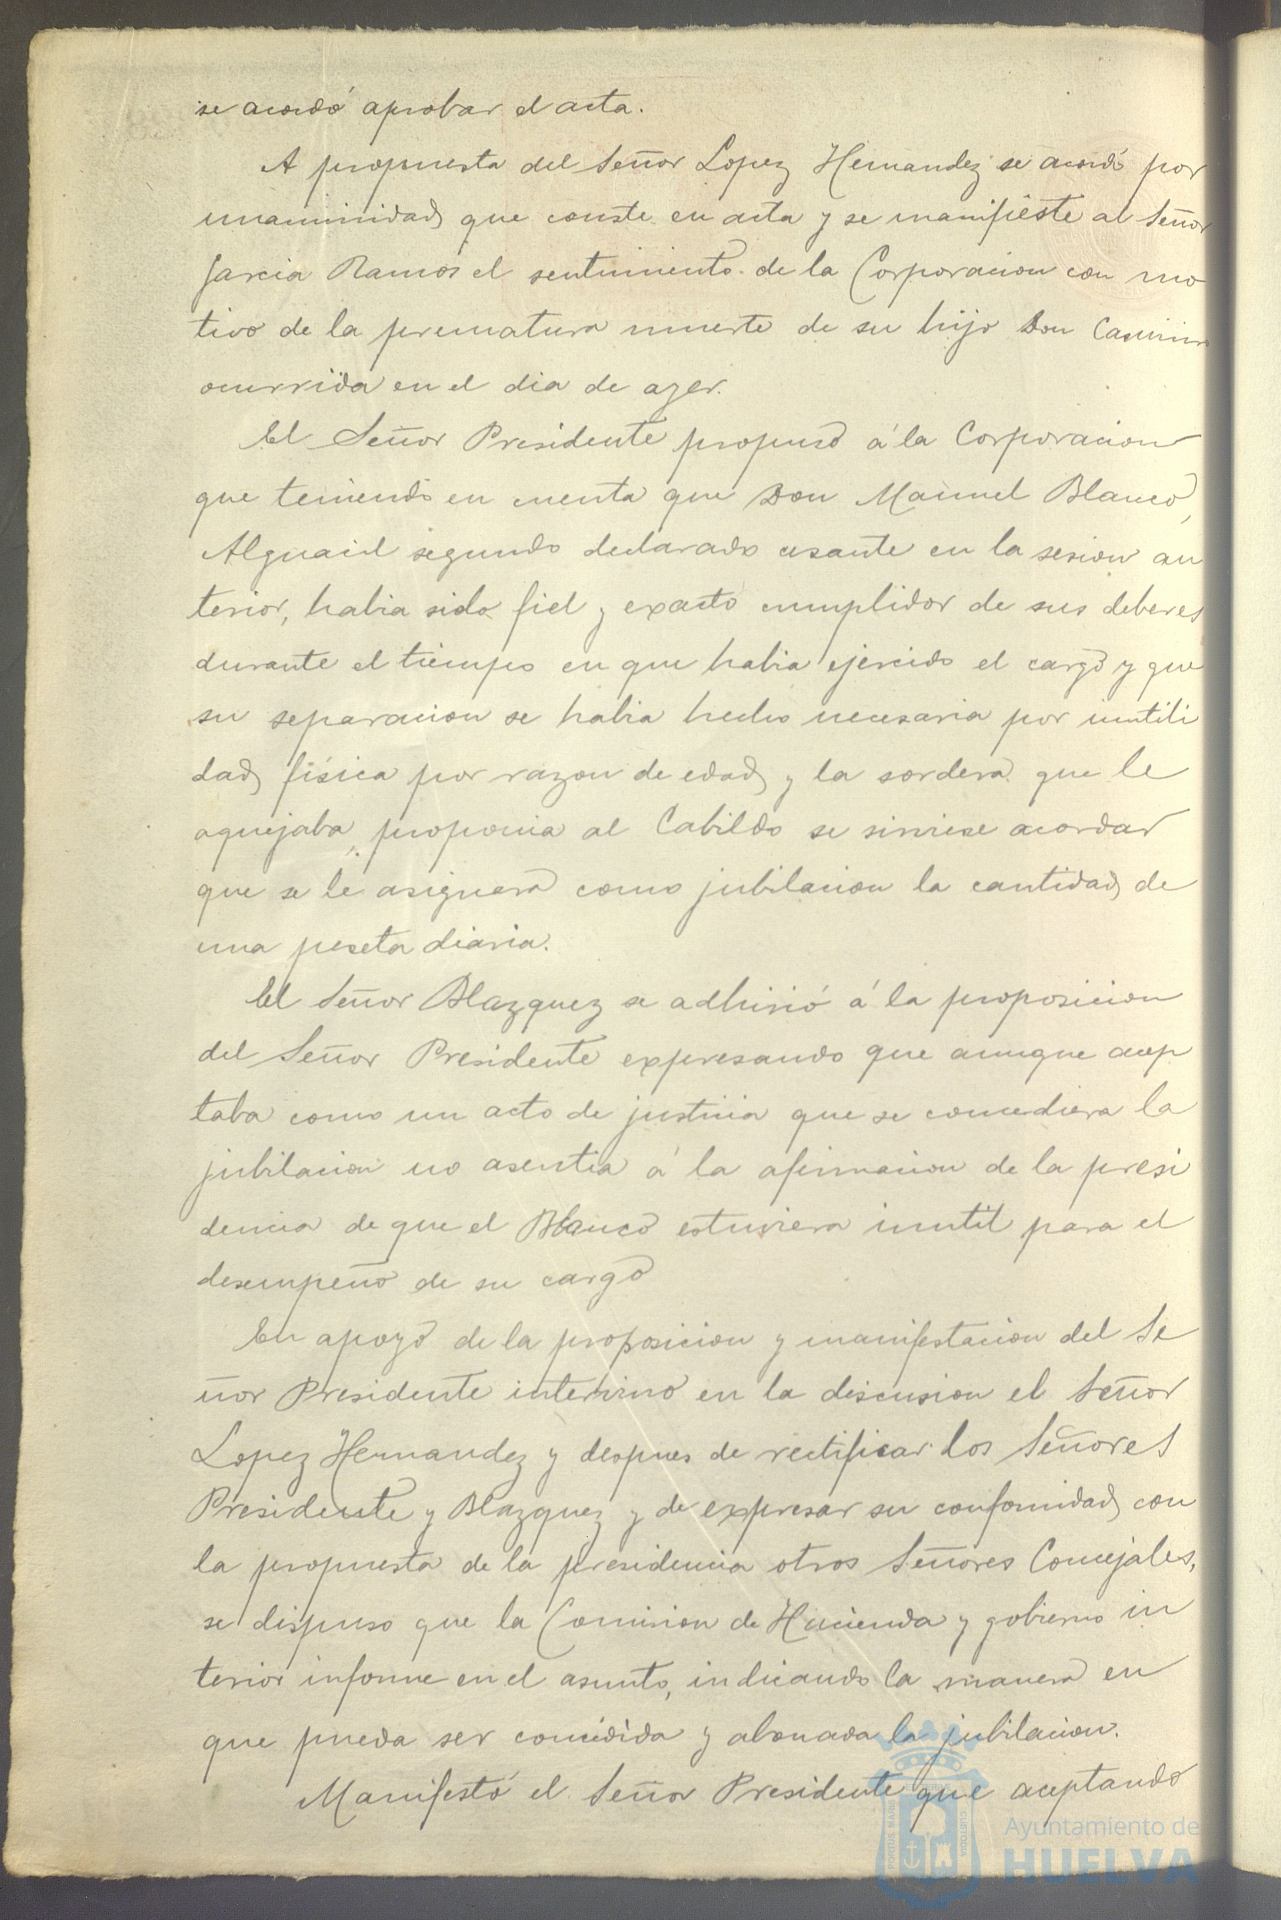 se acordó aprobar el acta.
A propuesta del Señor Lopez Hernandez se acordó por
unanimidad que conste en acta y se manifieste al Señor
Garcia Ramos el sentimiento de la Corporacion con mo
tivo de la prematura muerte de su hijo Don Casimiro
ocurrida en el dia de ayer.
El Señor Presidente propuso á la Corporacion
que teniendo en cuenta que Don Manuel Blanco,
Alguacil segundo declarado cesante en la sesion an
terior, habia sido fiel y exacto cumplidor de sus deberes
durante el tiempo en que habia ejercido el cargo y que
su separacion se habia hecho necesaria por inutili
dad física por razon de edad y la sordera que le
aquejaba, proponia al Cabildo se sirviese acordar
que se le asignera como jubilacion la cantidad de
una peseta diaria.
El Señor Blazquez se adhirió á la proposicion
del Señor Presidente expresando que aunque acep
taba como un acto de justicia que se concediera la
jubilacion no asentia á la afirmacion de la presi
dencia de que el Blanco estuviera inutil para el
desempeño de su cargo
En apoyo de la proposicion y manifestacion del Se
ñor Presidente intervino en la discusion el Señor
Lopez Hernandez y despues de rectificar los Señores
Presidente y Blazquez y de expresar su conformidad con
la propuesta de la presidencia otros Señores Concejales,
se dispuso que la Comision de Hacienda y gobierno in
terior informe en el asunto, indicando la manera en
que pueda ser concedida y abonada la jubilacion.
Manifestó el Señor Presidente que aceptando
Ayuntamiento de
HUELVA